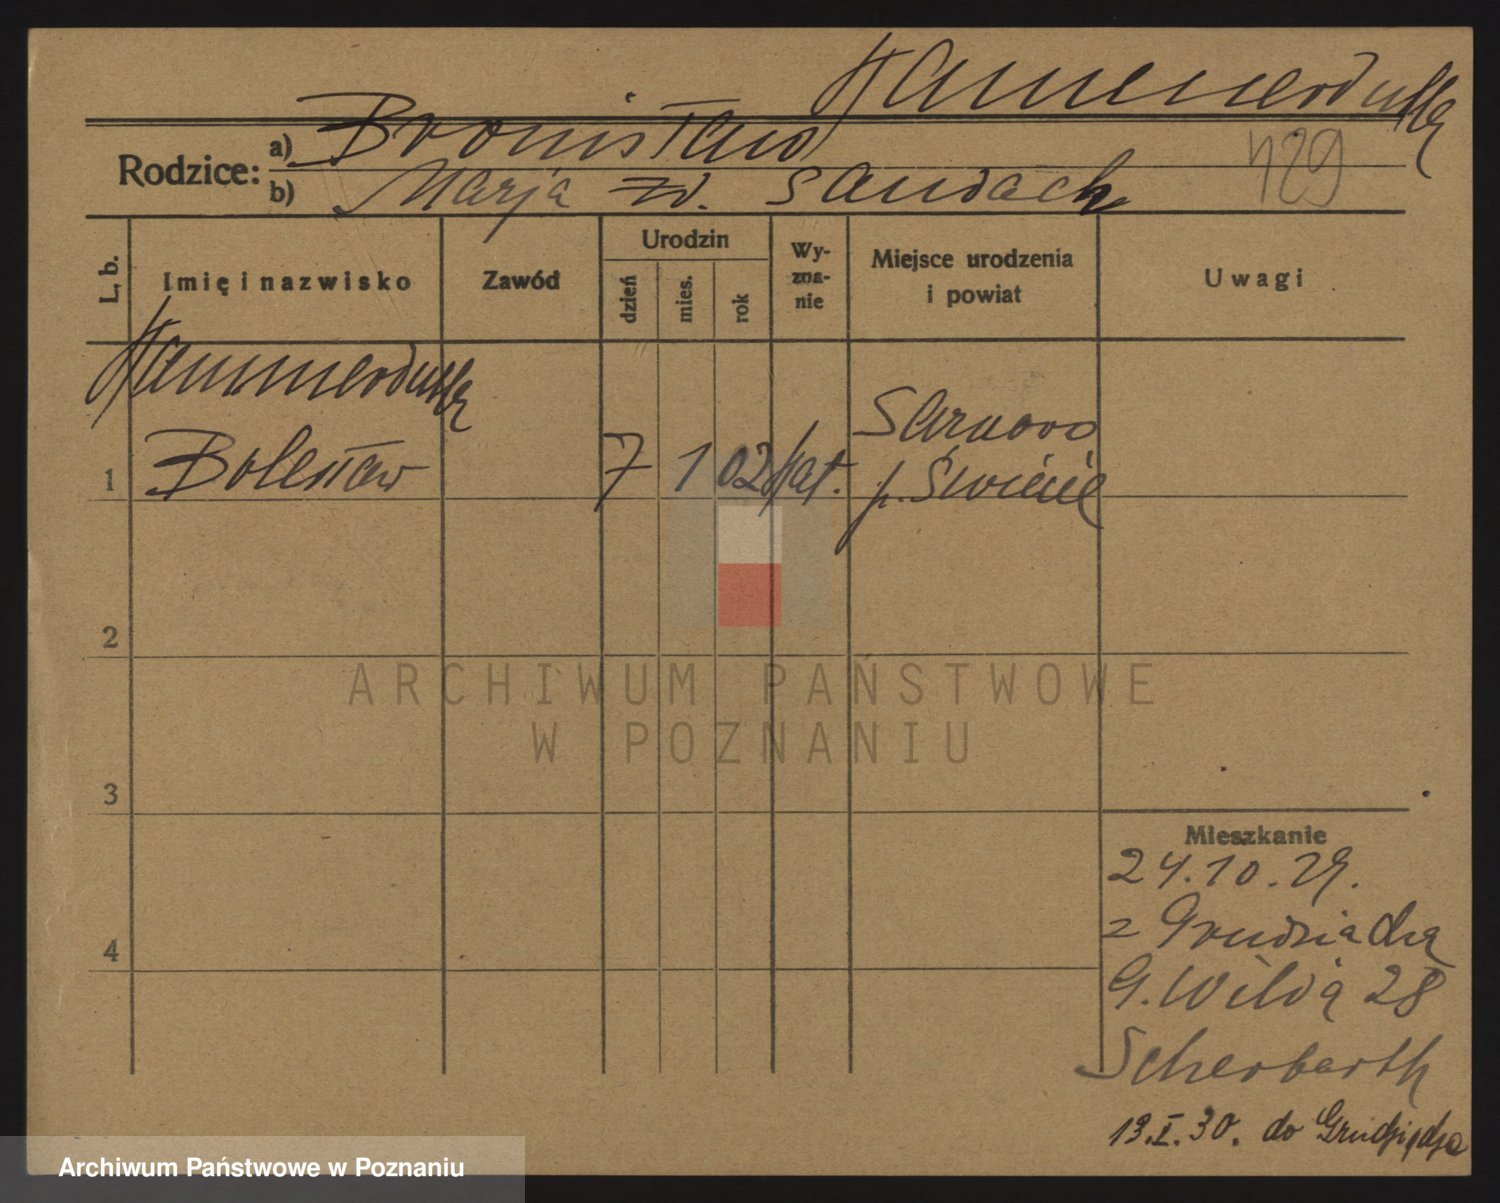 Hammerdulla
Rodzice: a) Bronisław
b) Marja zd. Saudach
429
L. b.
Imię i nazwisko
Zawód
Urodzin
dzień
mies.
rok
Wy-
zna-
nie
Miejsce urodzenia
i powiat
Uwagi
Hammerdulla
1 Bolesław 7 1 02 kat. Sarnowo
p. Świecie
2
3
4
Mieszkanie
24.10.29.
z Grudziądza
G. Wilda 28
Scherbarth
13.I.30. do Grudziądza
ARCHIWUM PAŃSTWOWE
W POZNANIU
Archiwum Państwowe w Poznaniu